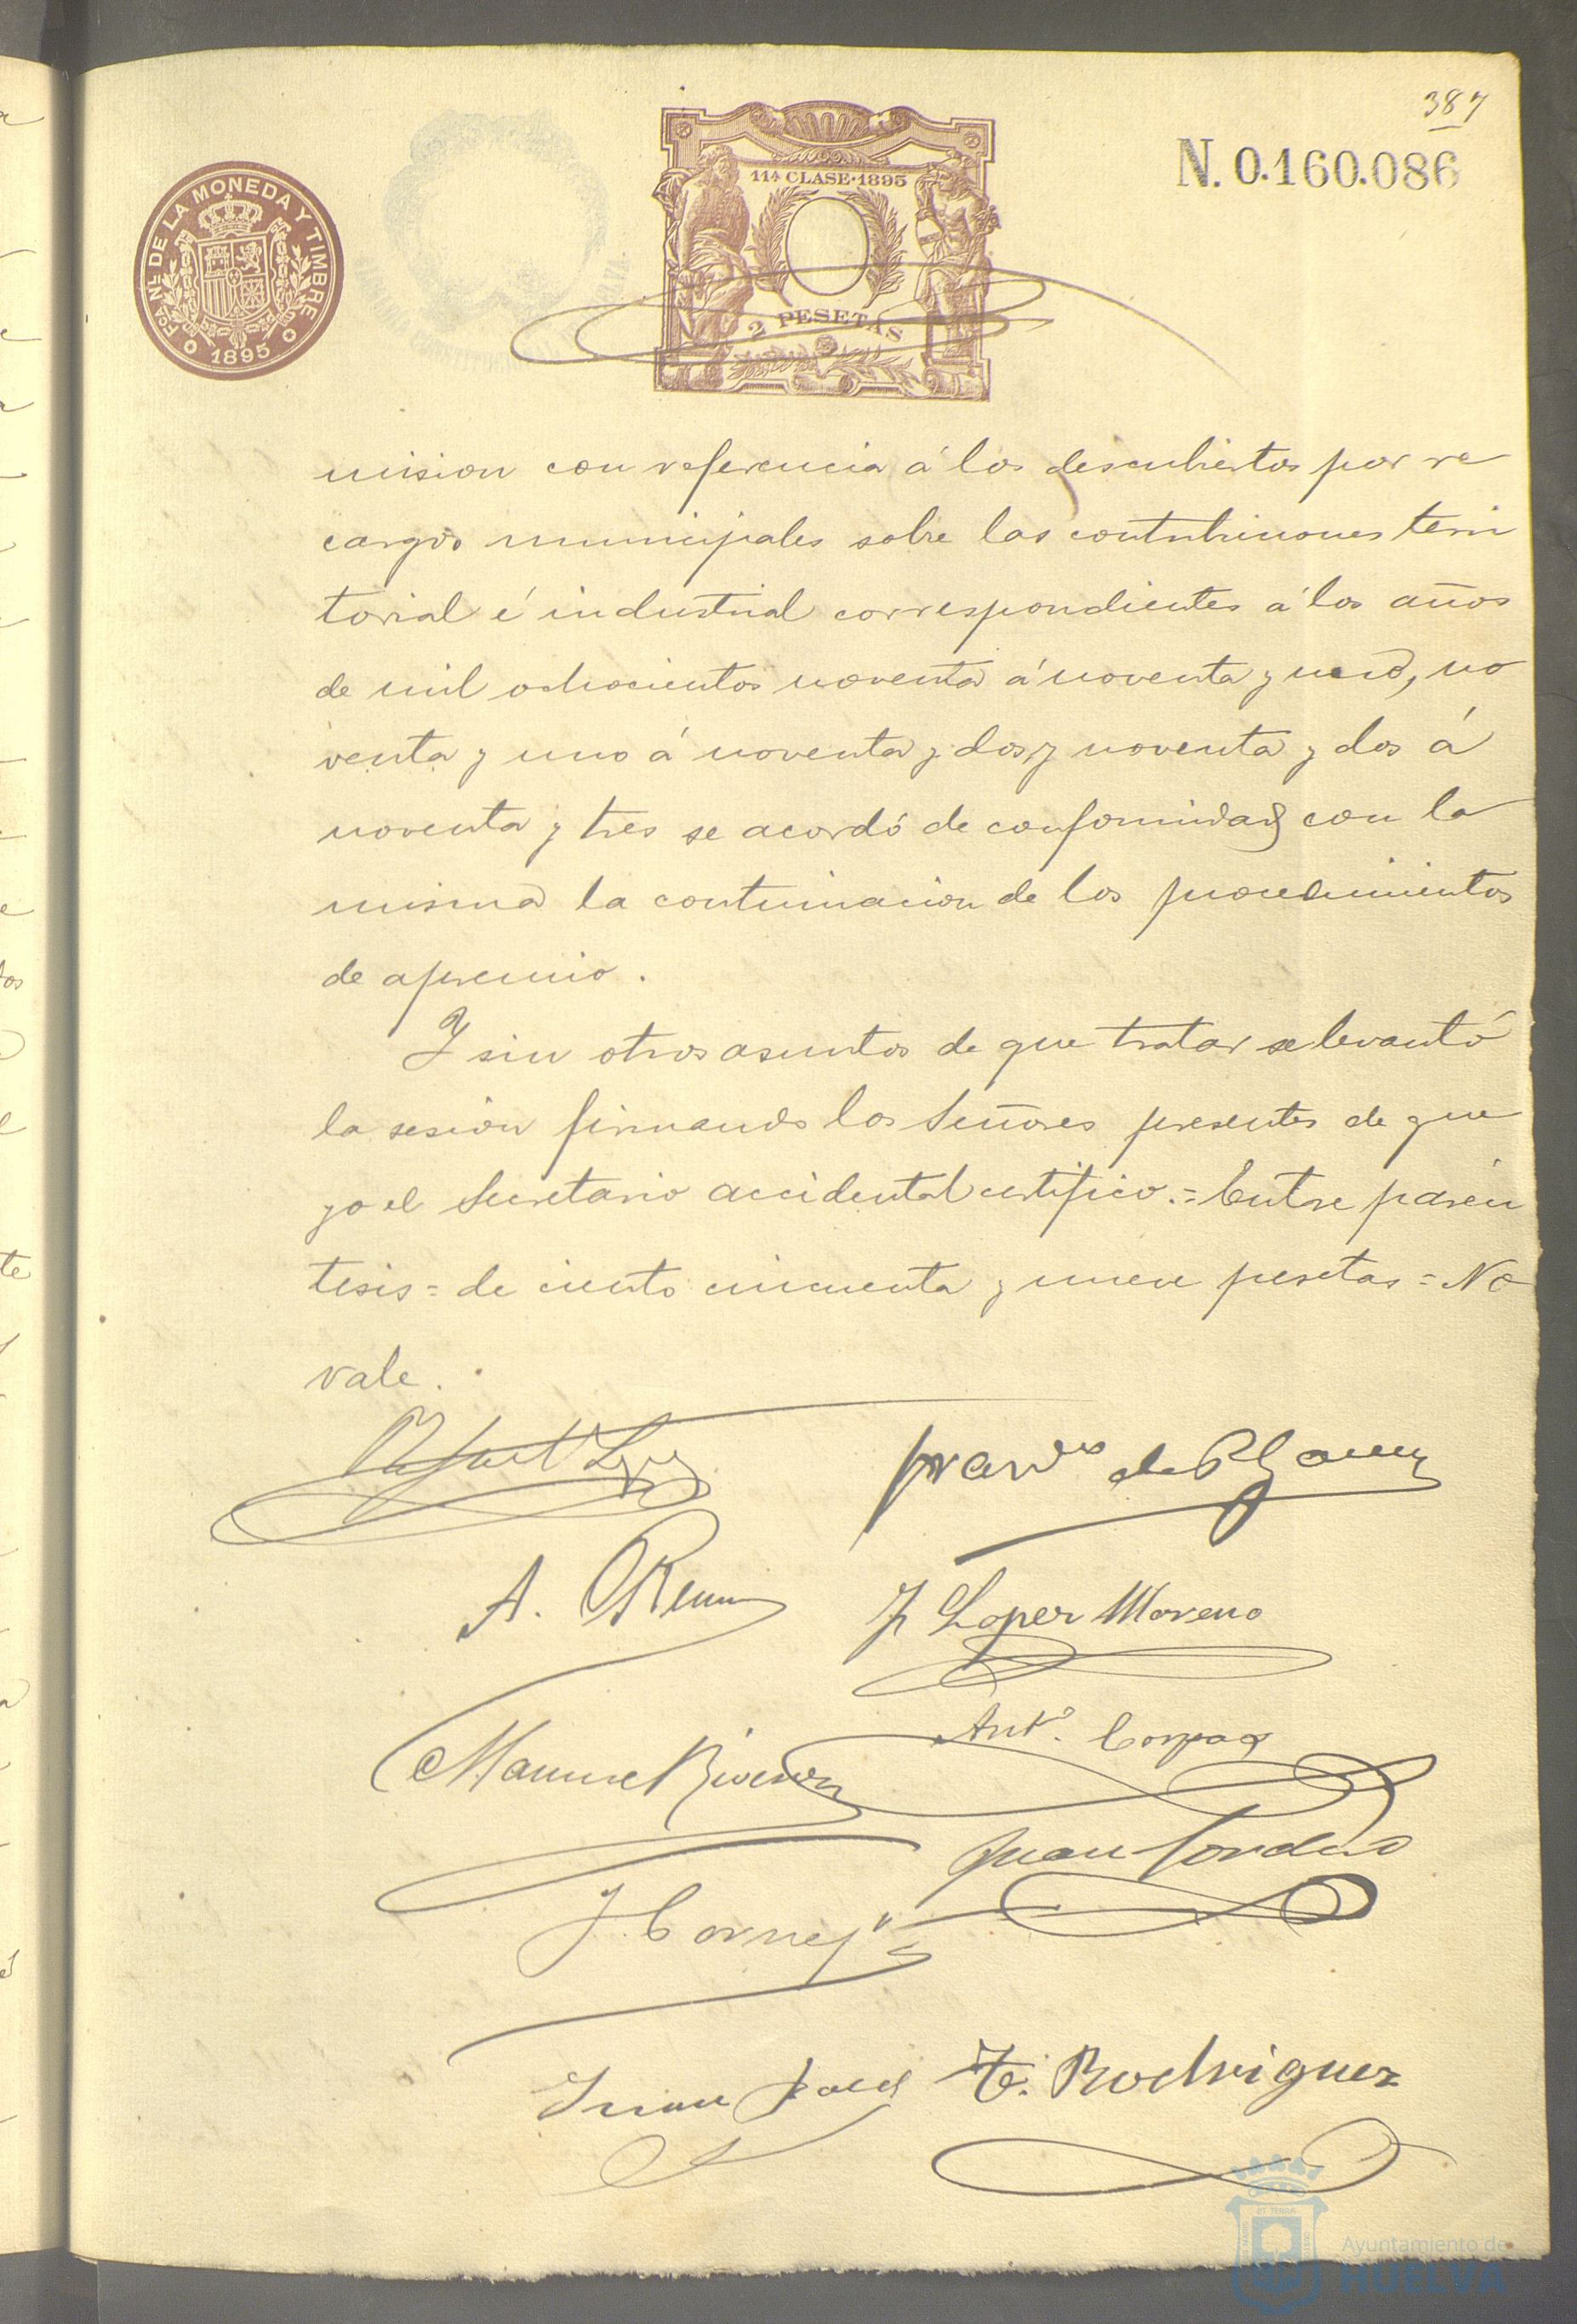 387
N. 0.160.086
Fca. Nal. DE LA MONEDA Y TIMBRE
1895
11ª CLASE·1895
2 PESETAS
mision con referencia á los descubiertos por re
cargos municipales sobre las contribuciones terri
torial é industrial correspondientes á los años
de mil ochocientos noventa á noventa y uno, no
venta y uno á noventa y dos y noventa y dos á
noventa y tres se acordó de conformidad con la
misma la continuacion de los procedimientos
de apremio.
Y sin otros asuntos de que tratar se levantó
la sesion firmando los Señores presentes de que
yo el Secretario accidental certifico.= Entre parén
tesis = de ciento cincuenta y nueve pesetas = No
vale.
Rafael Lopez
A.
J Lopez Moreno
Antº. Corpas
Manuel
Juan Cordero
J. Cornejo
Juan
T. Rodriguez
Ayuntamiento de
HUELVA